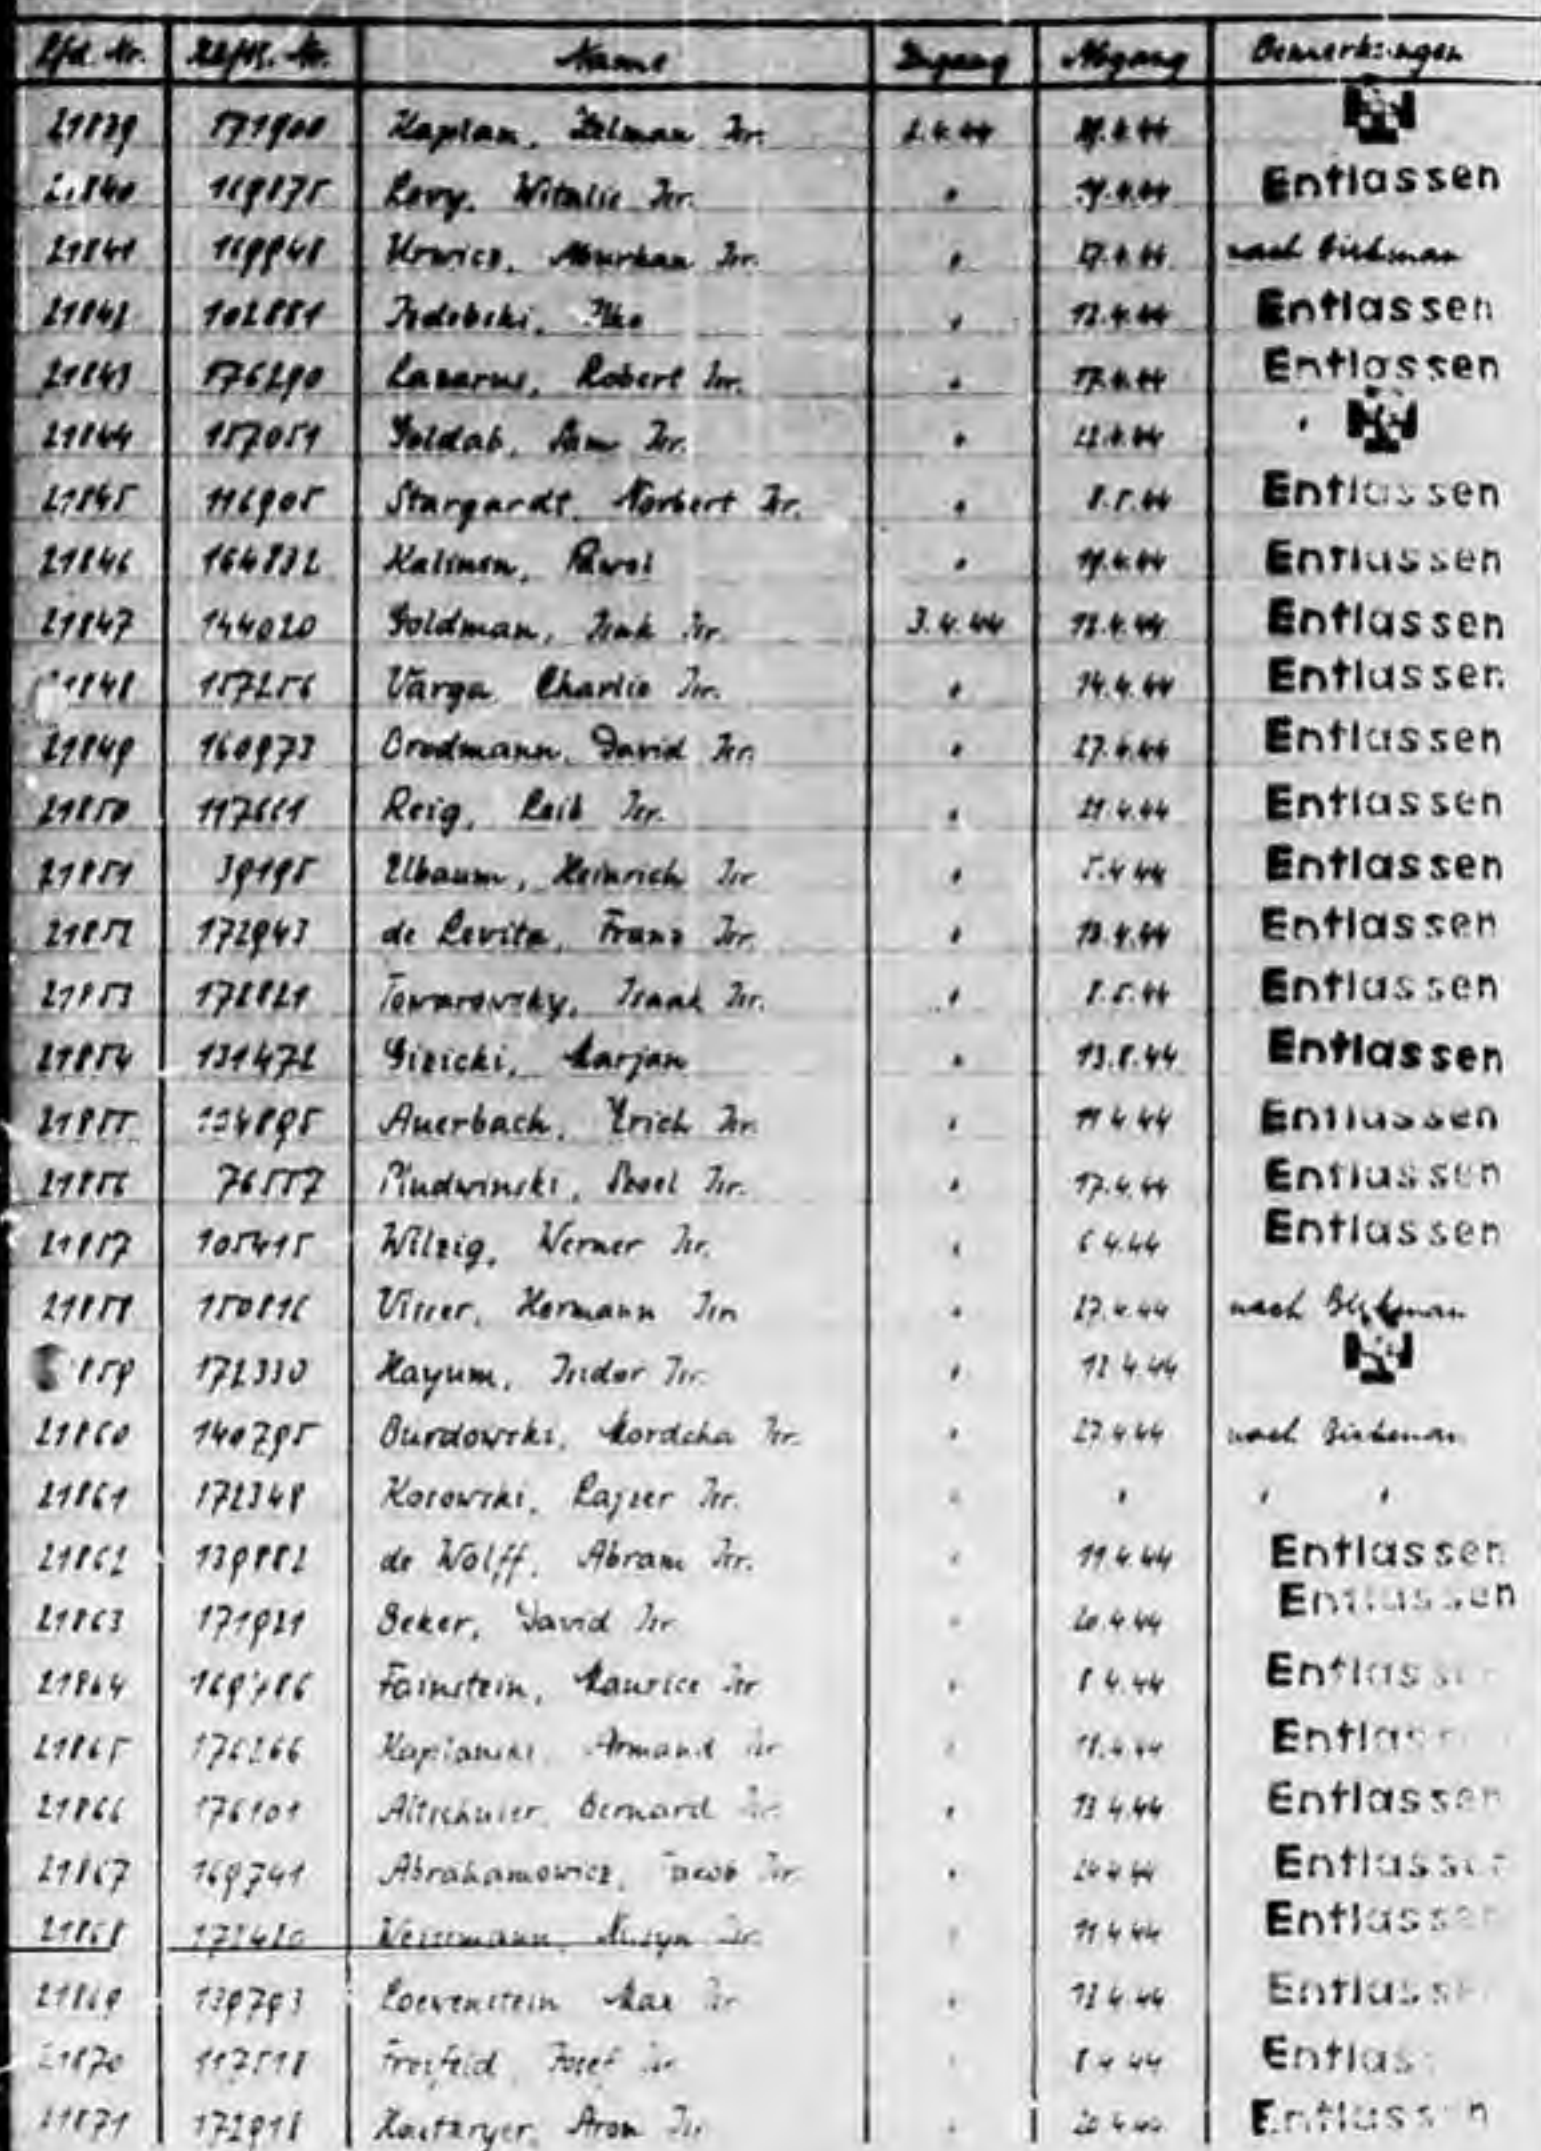 Lfd. Nr. Häftl. Nr. Name Zugang Abgang Bemerkungen
21839 171900 Kaplan, Zelman Isr. 2.4.44
21840 169875 Levy, Witalie Isr. " 19.4.44 Entlassen
21841 Isr. " 27.4.44 nach Birkenau
21842 102881 " 12.4.44 Entlassen
21843 176290 Lazarus, Robert Isr. " 17.4.44 Entlassen
21844 157051 Goldab, Isr. "
21845 116905 Stargardt, Norbert Isr. " 8.5.44 Entlassen
21846 164832 Kalinin, Pawel " 19.4.44 Entlassen
21847 144020 Goldman, Isak Isr. 3.4.44 12.4.44 Entlassen
21848 157256 Varga, Charlie Isr. " 14.4.44 Entlassen
21849 160973 Brodmann, David Isr. " 27.4.44 Entlassen
21850 117661 Reig, Leib Isr. " 21.4.44 Entlassen
21851 39195 Elbaum, Heinrich Isr " 5.4.44 Entlassen
21852 172943 de Levita, Franz Isr. " Entlassen
21853 172821 Towarowsky, Isaak Isr. " 8.5.44 Entlassen
21854 131472 Gizicki, Marjan " 13.8.44 Entlassen
21855 Auerbach, Erich Isr. " 11.4.44 Entlassen
21856 76557 Isr. " 17.4.44 Entlassen
21857 105415 Wilzig, Werner Isr. " 6.4.44 Entlassen
21858 150816 Visser, Hermann Isr. " 27.4.44 nach Birkenau
859 172330 Hayum, Isidor Isr. " 12.4.44
21860 140795 Burdowski, Mordcha Isr. " 27.4.44 nach Birkenau
21861 172348 Kosowski, Lajzer Isr. " " " "
21862 139882 de Wolff, Abram Isr. " 11.4.44 Entlassen
21863 171921 Beker, David Isr " 20.4.44 Entlassen
21864 Fainstein, Maurice Isr " 8.4.44 Entlassen
21865 176266 Kaplanski, Armand Isr " Entlassen
21866 176101 Altschuler, Bernard Isr. " 13.4.44 Entlassen
21867 169741 Abrahamowicz, Jacob Isr. " Entlassen
21868 Isr. " 11.4.44 Entlassen
21869 139793 Loewenstein Max Isr " 12.4.44 Entlassen
21870 117518 Josef Isr " 8.4.44 Entlassen
21871 172918 Aron Isr " 20.4.44 Entlassen